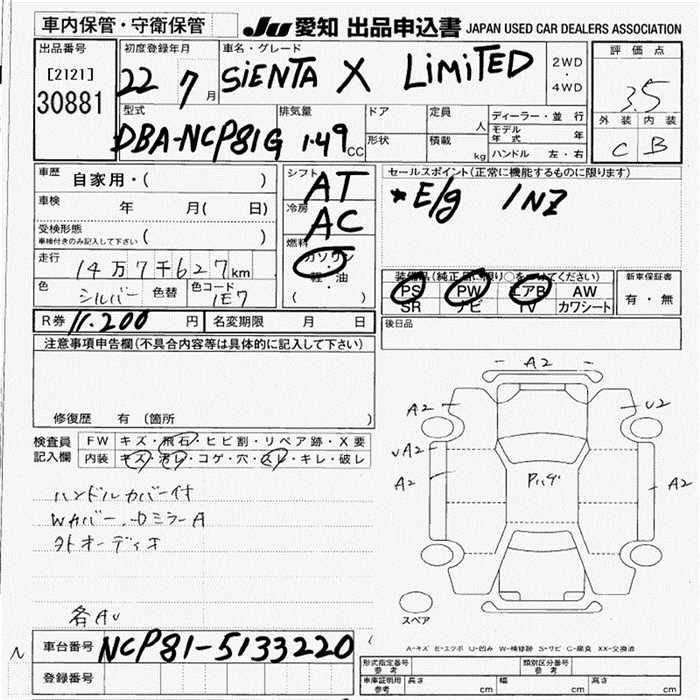 車内保管・守衛保管
JU 愛知 出品申込書 JAPAN USED CAR DEALERS ASSOCIATION
出品番号 初度登録年月 車名・グレード 2WD・4WD 評価点
[2121] 22 7月 SiENTA X LiMiTED 3.5
30881 型式 排気量 ドア 定員 人 ディーラー・並行 外装 内装
DBA-NCP81G 1.49 CC 形状 積載 kg モデル年式 年 C B
ハンドル 左・右
車歴 自家用・( ) シフト AT セールスポイント(正常に機能するものに限ります)
車検 年 月( 日) 冷房 AC *E/g 1NZ
受検形態 ( )
車検付きのみ記入して下さい
燃料 ガソリン・軽・油 ( )
走行 14万7千627km
装備品(純正品に限り○をつけてください) 新車保証書
色 シルバー 色替 色コード 1E7
PS PW エアB AW 有・無
SR ナビ TV カワシート
R券 11.200円 名変期限 月 日 後日品
注意事項申告欄(不具合内容等は具体的に記入して下さい)
修復歴 有 〔箇所 〕
検査員記入欄 FW キズ・飛石・ヒビ割・リペア跡・X要
内装 キズ・汚レ・コゲ・穴・スレ・キレ・破レ
A2
A2 U2
A2
A2 A2
ハンドルカバー付
Wカバー.
外オーディオ
スペア
A-キズ E-エクボ U-凹み W-補修跡 S-サビ C-腐食 XX-交換済
車台番号 NCP81-5133220
登録番号
型式指定番号 参考 類別区分番号 参考
車庫証明用 参考 長さ cm 幅 cm 高さ cm